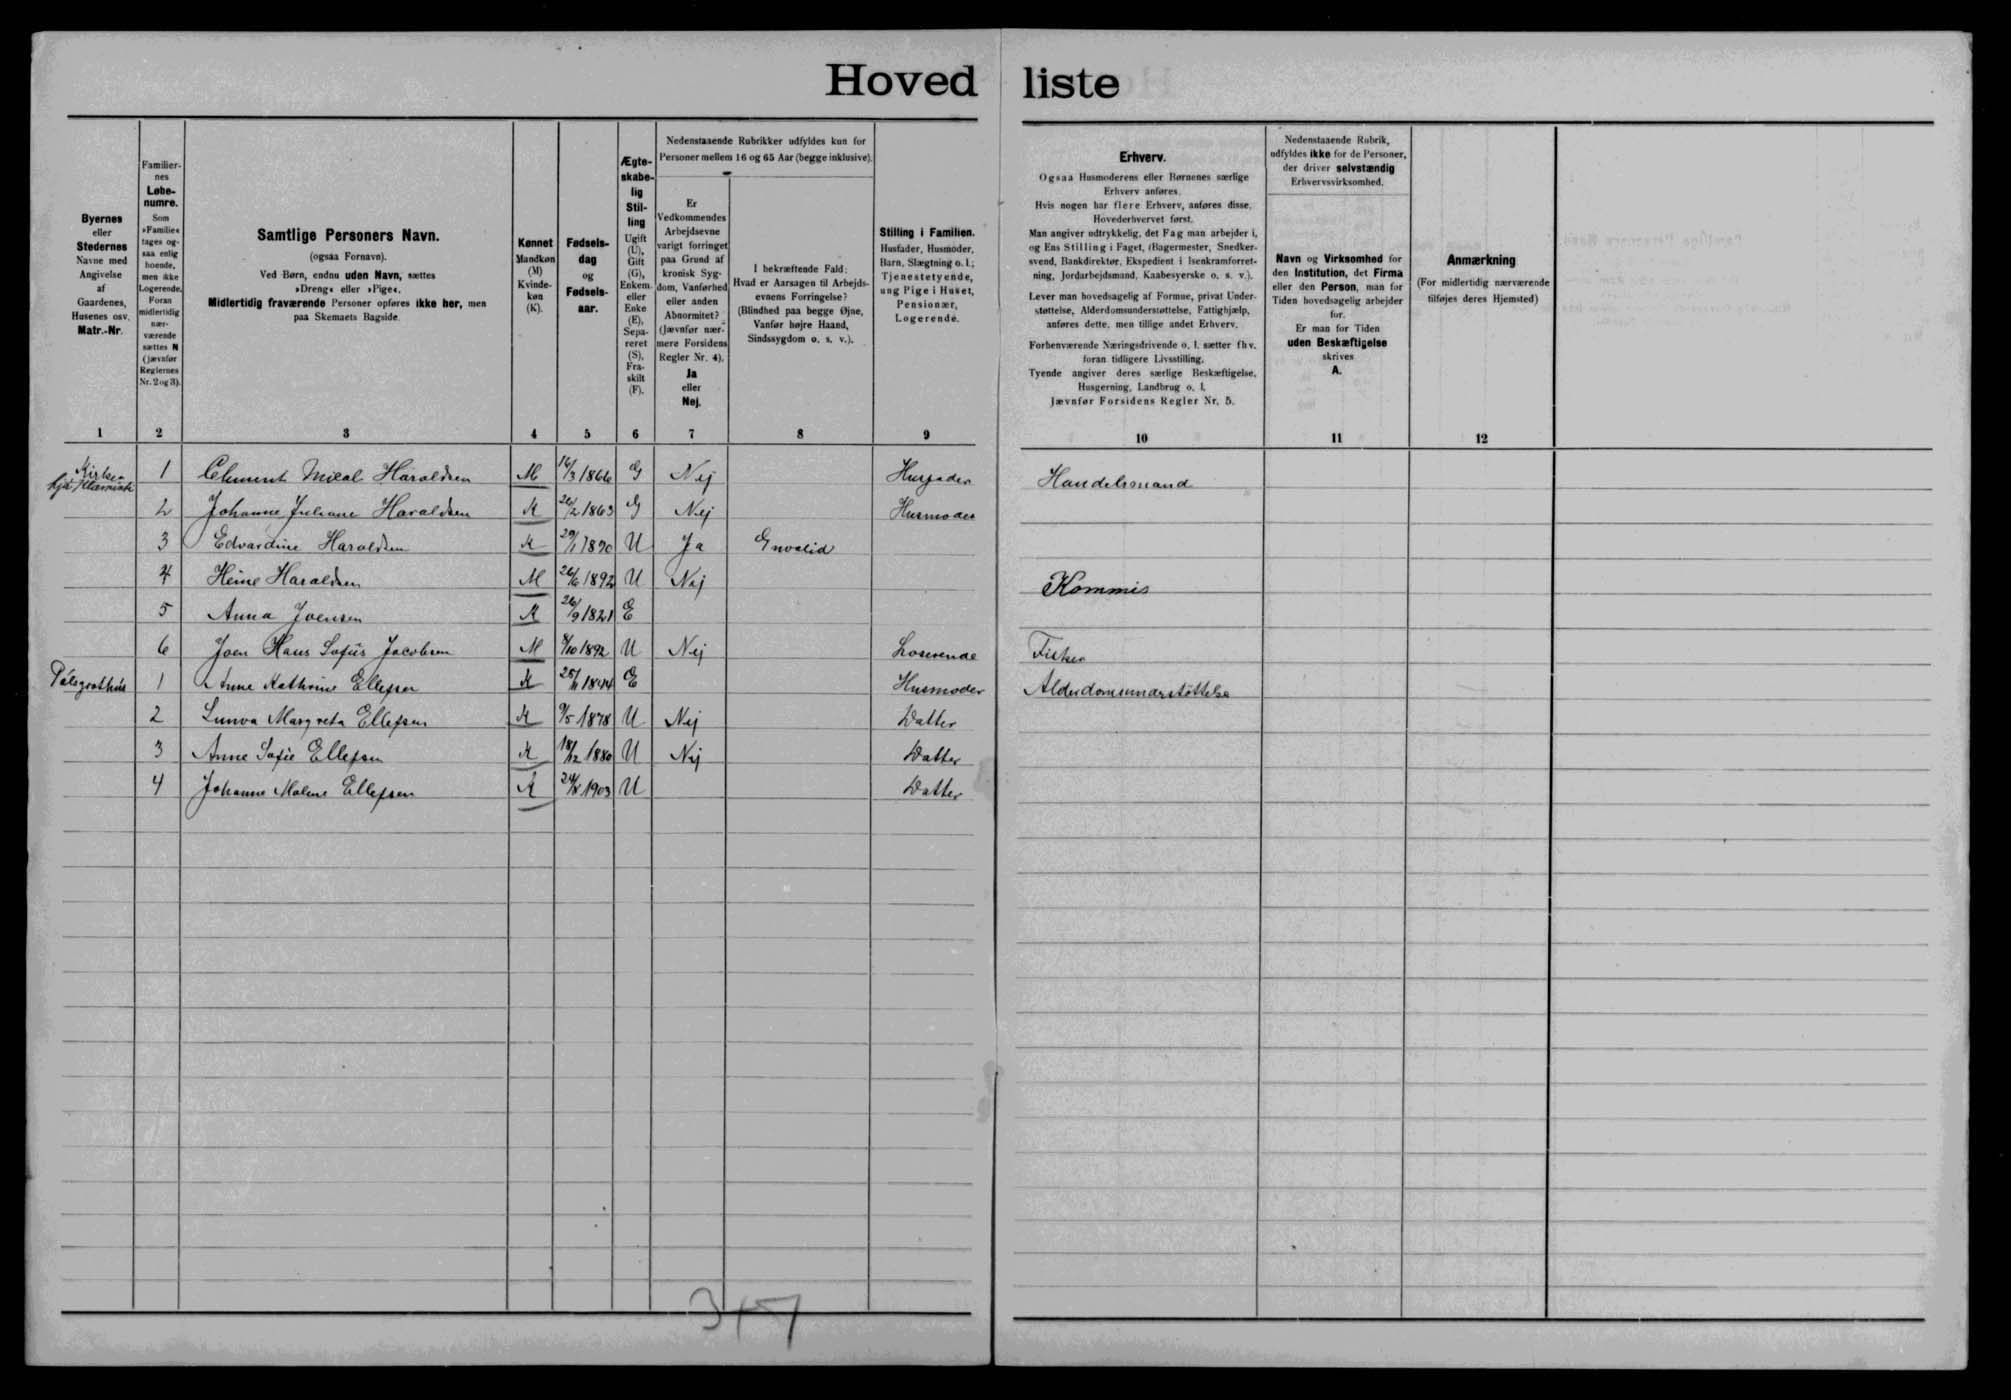 Hovedliste
Byernes
eller
Stedernes
Navne med
Angivelse
af
Gaardenes,
Husenes osv.
Matr.-Nr.
Familier-
nes
Løbe-
numre.
Som
»Familie«
tages og-
saa enlig
boende,
men ikke
Logerende.
Foran
midlertidig
nær-
værende
sættes N
(jævnfør
Reglernes
Nr. 2 og 3).
Samtlige Personers Navn.
(ogsaa Fornavn).
Ved Børn, endnu uden Navn, sættes
»Dreng« eller »Pige«.
Midlertidig fraværende Personer opføres ikke her, men
paa Skemaets Bagside.
Kønnet
Mandkøn
(M)
Kvinde-
køn
(K).
Fødsels-
dag
og
Fødsels-
aar.
Ægte-
skabe-
lig
Stil-
ling
Ugift
(U),
Gift
(G),
Enkem.
eller
Enke
(E),
Sepa-
reret
(S),
Fra-
skilt
(F).
Nedenstaaende Rubrikker udfyldes kun for
Personer mellem 16 og 65 Aar (begge inklusive).
Er
Vedkommendes
Arbejdsevne
varigt forringet
paa Grund af
kronisk Syg-
dom, Vanførhed
eller anden
Abnormitet?
(Jævnfør nær-
mere Forsidens
Regler Nr. 4).
Ja
eller
Nej.
I bekræftende Fald:
Hvad er Aarsagen til Arbejds-
evnens Forringelse?
(Blindhed paa begge Øjne,
Vanfør højre Haand,
Sindssygdom o. s. v.).
Stilling i Familien.
Husfader, Husmoder,
Barn, Slægtning o. l.;
Tjenestetyende,
ung Pige i Huset,
Pensionær,
Logerende.
Erhverv.
Ogsaa Husmoderens eller Børnenes særlige
Erhverv anføres.
Hvis nogen har flere Erhverv, anføres disse,
Hovederhvervet først.
Man angiver udtrykkelig, det Fag man arbejder i,
og Ens Stilling i Faget, (Bagermester, Snedker-
svend, Bankdirektør, Ekspedient i Isenkramforret-
ning, Jordarbejdsmand, Kaabesyerske o. s. v.).
Lever man hovedsagelig af Formue, privat Under-
støttelse, Alderdomsunderstøttelse, Fattighjælp,
anføres dette, men tillige andet Erhverv.
Forhenværende Næringsdrivende o. l. sætter fhv.
foran tidligere Livsstilling.
Tyende angiver deres særlige Beskæftigelse,
Husgerning, Landbrug o. l.
Jævnfør Forsidens Regler Nr. 5.
Nedenstaaende Rubrik,
udfyldes ikke for de Personer,
der driver selvstændig
Erhvervsvirksomhed.
Navn og Virksomhed for
den Institution, det Firma
eller den Person, man for
Tiden hovedsagelig arbejder
for.
Er man for Tiden
uden Beskæftigelse
skrives
A.
Anmærkning
(For midlertidig nærværende
tilføjes deres Hjemsted)
1 2 3 4 5 6 7 8 9 10 11 12
1 Clement Mikal Haraldsen M 16/3 1866 G Nej Husfader Handelsmand
2 Johanne Juliane Haraldsen K 26/2 1863 G Nej Husmoder
3 Edvardine Haraldsen K 29/1 1890 U Ja Invalid
4 Heine Haraldsen M 26/6 1892 U Nej Kommis
5 Anna Joensen K 26/9 1821 E
6 Joen Hans Sofus Jacobsen M 8/10 1892 U Nej Loserende Fisker
1 Anne Kathrine Ellefsen K 25/11 1844 E Husmoder Alderdomsunderstöttelse
2 Sunva Margreta Ellefsen K 9/5 1878 U Nej Datter
3 Anne Sofie Ellefsen K 18/12 1880 U Nej Datter
4 Johanne Malene Ellefsen K 1903 U Datter